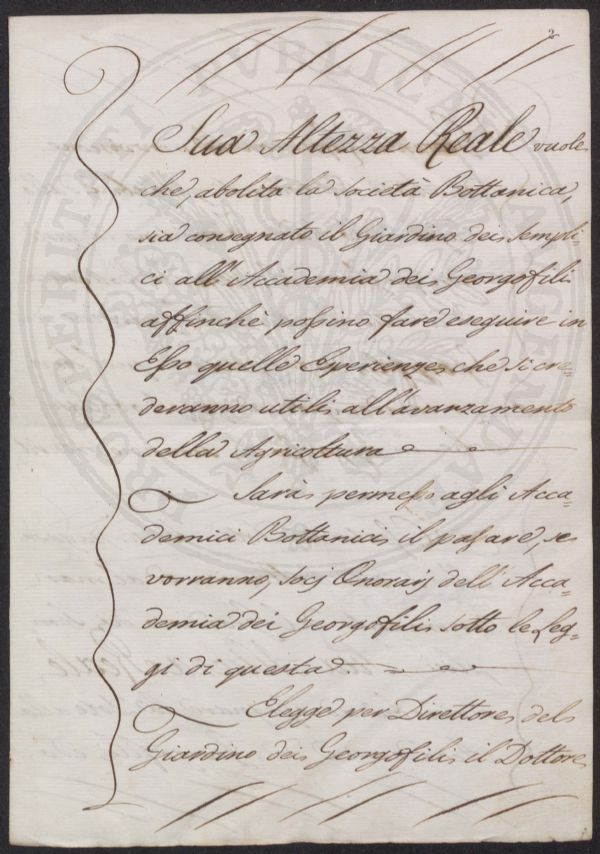 2
Sua Altezza Reale vuole
che, abolita la Società Bottanica,
sia consegnato il Giardino dei Sempli=
ci all'Accademia dei Georgofili
affinchè possino fare eseguire in
Esso quelle Esperienze, che si cre=
deranno utili all'avanzamento
della Agricoltura
Sarà permesso agli Acca=
demici Bottanici il passare, se
vorranno, Socj Onorarj dell'Acca=
demia dei Georgofili sotto le Leg=
gi di questa.
Elegge per Direttore del
Giardino dei Georgofili il Dottore
PROSPERITATI PUBLICAE AUGENDAE